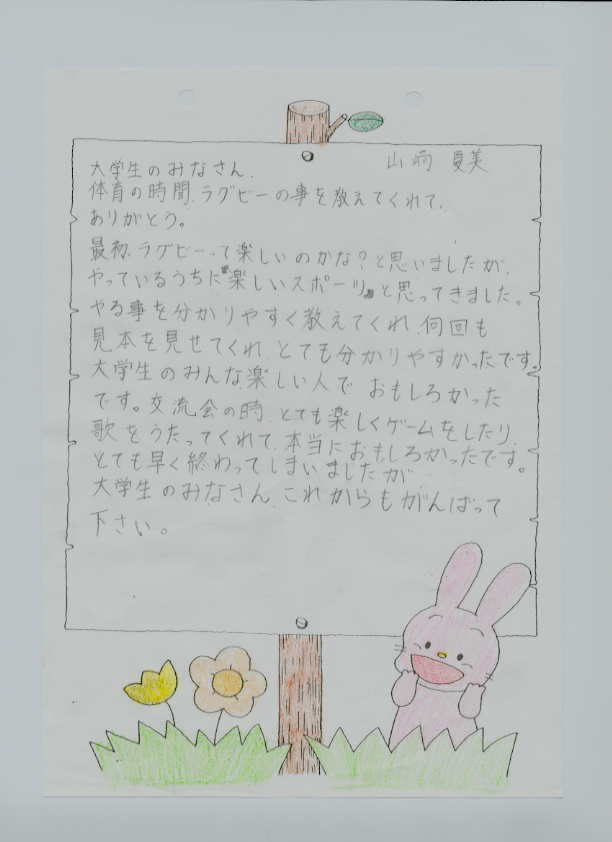 山崎 夏美
大学生のみなさん、
体育の時間、ラグビーの事を教えてくれて、
ありがとう。
最初、ラグビーって楽しいのかな?と思いましたが、
やっているうちに"楽しいスポーツ"と思ってきました。
やる事を分かりやすく教えてくれ、何回も
見本を見せてくれ、とても分かりやすかったです。
大学生のみんな、楽しい人で おもしろかった
です。交流会の時、とても楽しくゲームをしたり、
歌をうたってくれて、本当におもしろかったです。
とても早く終わってしまいましたが
大学生のみなさん、これからもがんばって
下さい。